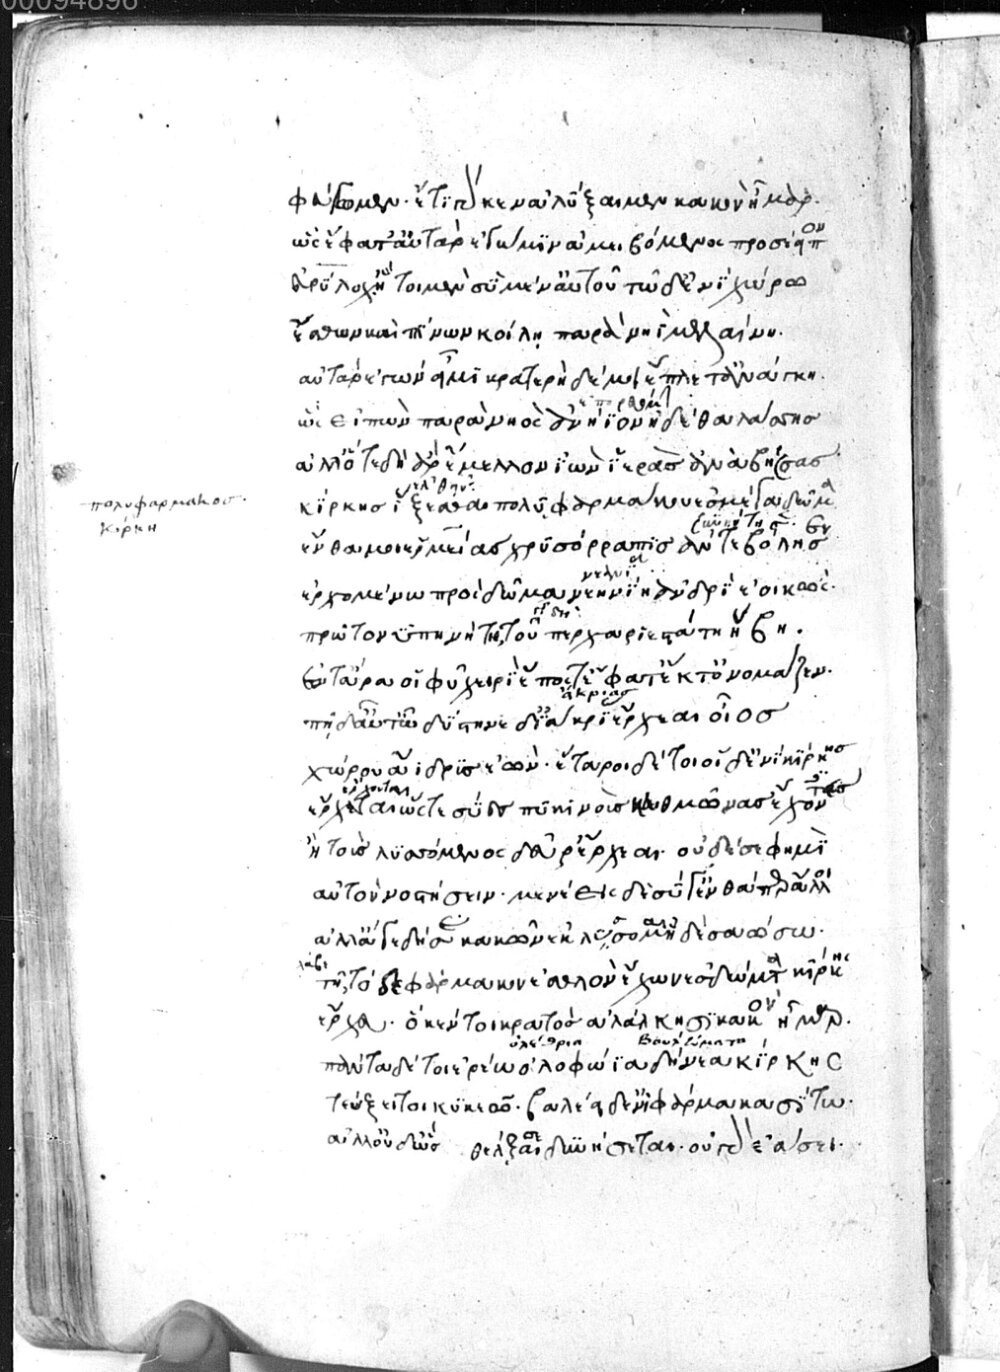 00094896
φεύγωμεν· ἔτι γάρ κεν ἀλύξαιμεν κακὸν ἦμαρ.
ὣς ἔφατ' αὐτὰρ ἐγώ μιν ἀμειβόμενος προσέειπον
εὐρύλοχ' ἤτοι μὲν σὺ μέν' αὐτοῦ τῶδ' ἐνὶ χώρω
ἔσθων καὶ πίνων κοίλη παρὰ νηῒ μελαίνη.
αὐτὰρ ἐγὼν εἶμι κρατερὴ δέ μοι ἔπλετ' ἀνάγκη.
ὣς εἰπὼν παρὰ νηὸς ἀνήϊον ἠδὲ θαλάσσης
ἀλλ' ὅτε δὴ ἄρ' ἔμελλον ἰὼν ἱερὰς ἀνὰ βήσσας
πολυφάρμακος
κίρκη
κίρκης ἵξεσθαι πολυφαρμάκου ἐς μέγα δῶμα
ἔνθα μοι ἑρμείας χρυσόρραπις ἀντεβόλησεν
ἐρχομένω πρὸς δῶμα νεηνίη ἀνδρὶ ἐοικώς·
πρῶτον ὑπηνήτη, τοῦ περ χαριεστάτη ἥβη.
ἔν τ' ἄρα οἱ φῦ χειρὶ ἔπος τ' ἔφατ' ἔκ τ' ὀνόμαζεν.
ἄκριας
πῆ δ' αὖτ' ὦ δύστηνε δι' ἄκριας ἔρχεαι οἶος
χώρου ἄϊδρις ἐών· ἕταροι δέ τοι οἵδ' ἐνὶ κίρκης
ἔρχαται ὥστε σύες πυκινοὺς κευθμῶνας ἔχοντες
ἦ τοὺς λυσόμενος δεῦρ' ἔρχεαι· οὐδέ σε φημὶ
αὐτὸν νοστήσειν· μενέεις δὲ σύ γ' ἔνθα περ ἄλλοι
ἀλλ' ἄγε δή σε κακῶν ἐκλύσομαι ἠδὲ σαώσω·
τῆ, τόδε φάρμακον ἐσθλὸν ἔχων ἐς δώματα κίρκης
ἔρχευ· ὅ κέν τοι κρατὸς ἀλάλκησι κακὸν ἦμαρ.
ὀλέθρια βουλεύματα
πάντα δέ τοι ἐρέω ὀλοφώϊα δήνεα κίρκης
τεύξει τοι κυκεῶ· βαλέει δ' ἐν φάρμακα σίτω·
ἀλλ' οὐδ' ὣς θέλξαι σε δυνήσεται· οὐ γὰρ ἐάσει·